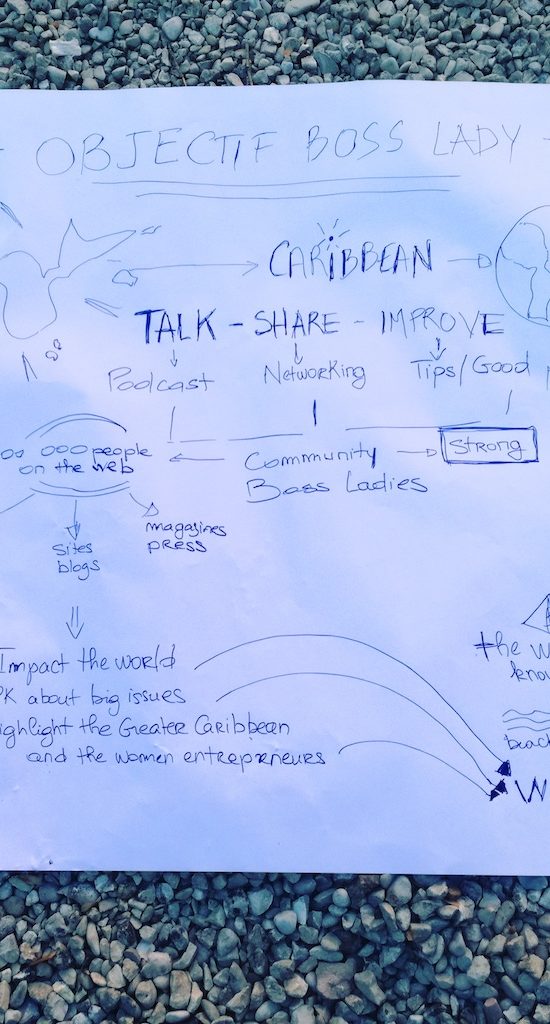 OBJECTIF BOSS LADY
CARIBBEAN
TALK - SHARE - IMPROVE
Podcast
Networking
Tips/Good
000 people
on the web
Community
Boss Ladies
Strong
magazines
press
sites
blogs
Impact the world
about big issues
the Greater Caribbean
and the women entrepreneurs
the